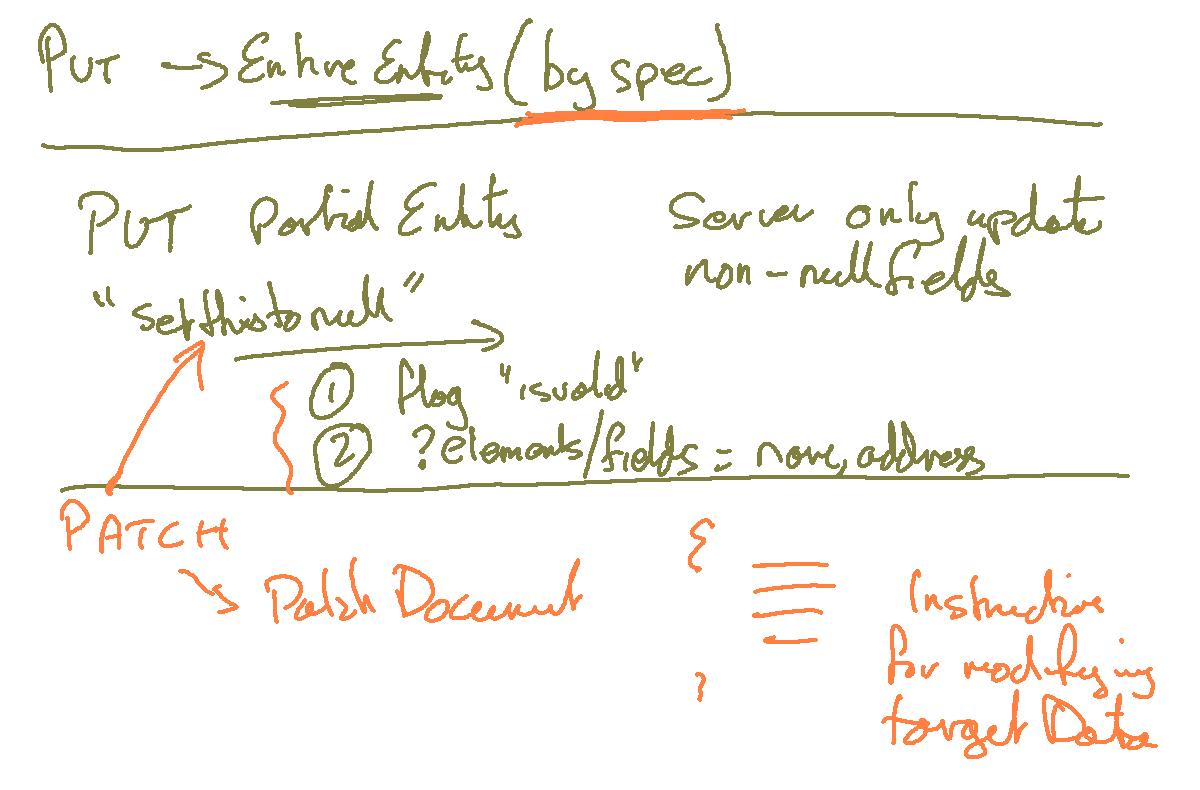 PUT → Entire Entity (by spec)
PUT Partial Entity
Server only update
non-null fields
"set this to null"
① flag "isvalid"
② ?elements/fields = name, address
PATCH
→ Patch Document
{
}
Instructions
for modifying
target Data